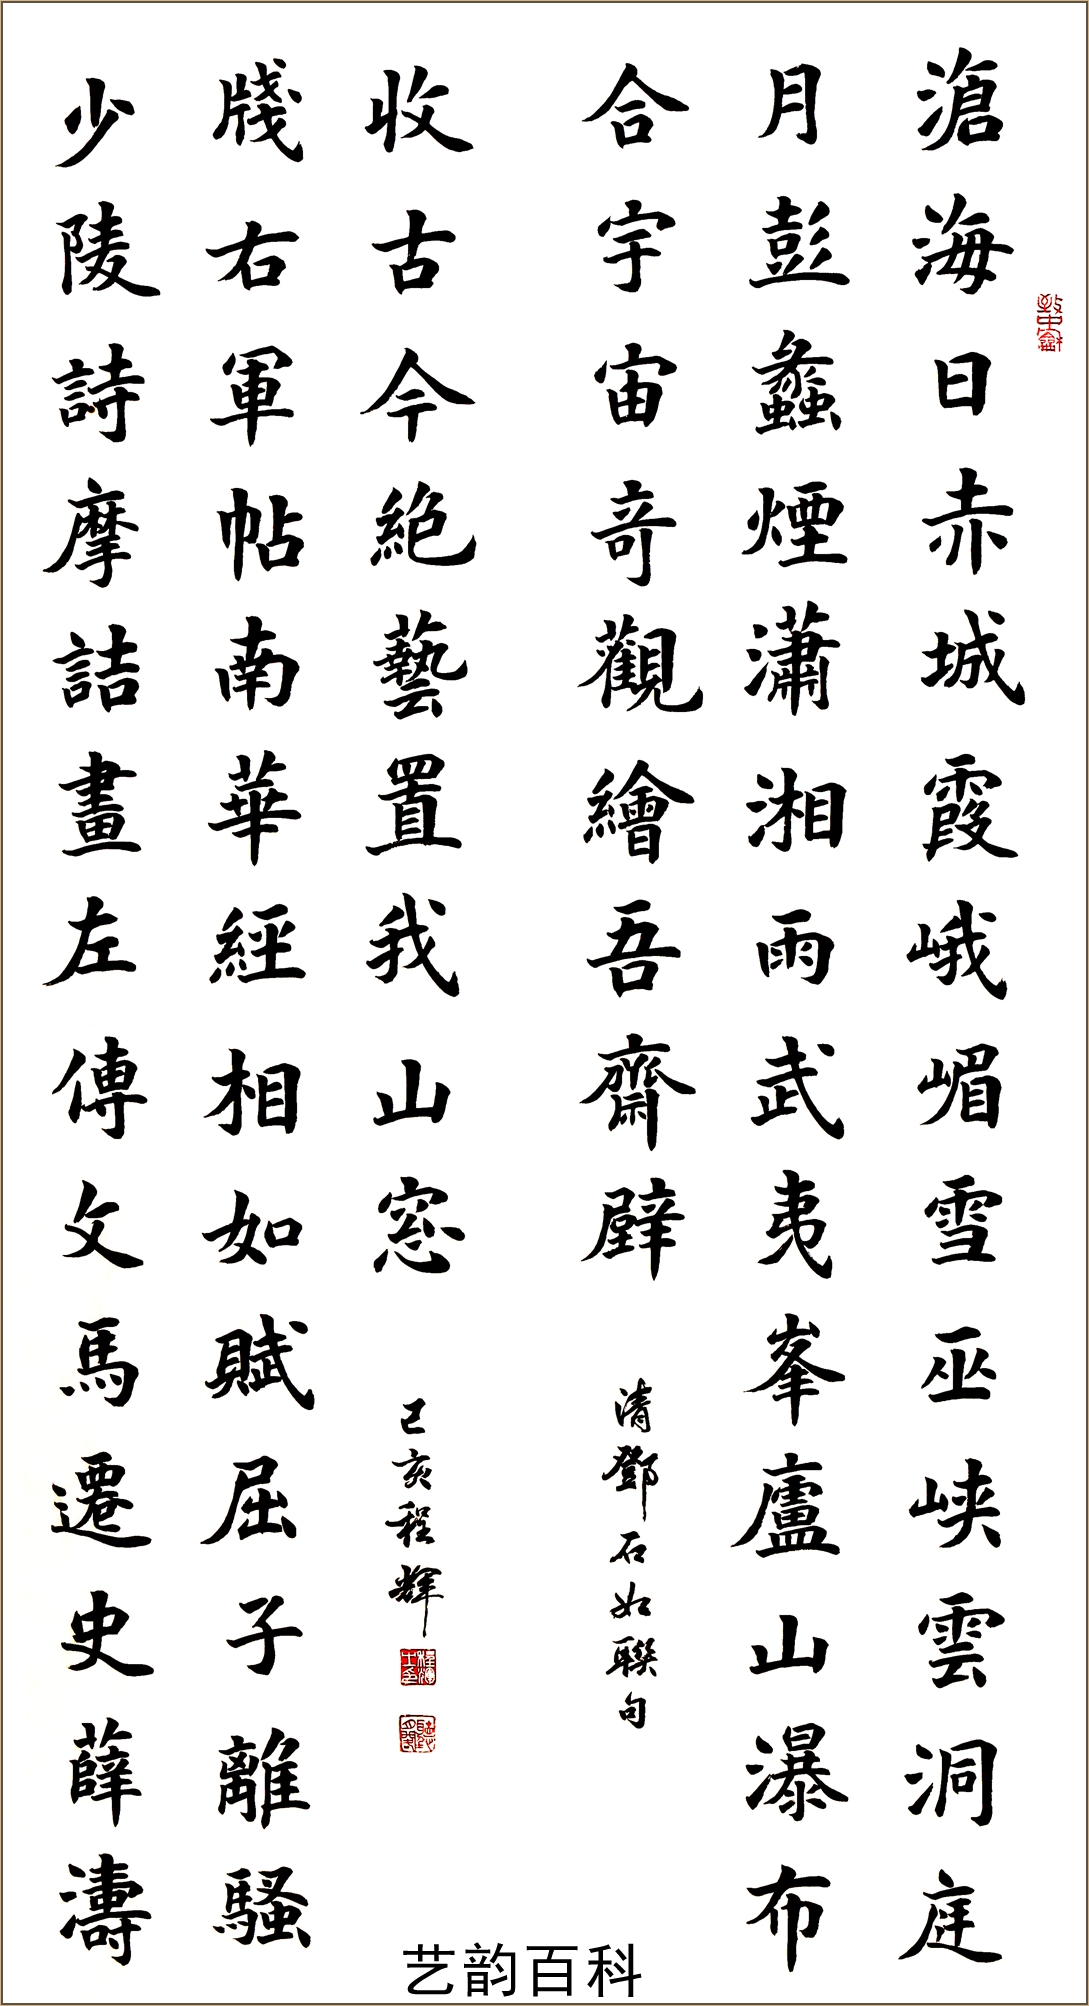 滄海日赤城霞峨嵋雪巫峡雲洞庭
月彭蠡煙瀟湘雨武夷峯廬山瀑布
合宇宙竒觀繪吾齋壁
清鄧石如聯句
少陵詩摩詰畫左傳文馬遷史薛濤
牋右軍帖南華經相如賦屈子離騷
收古今絶藝置我山窓
己亥程輝
艺韵百科